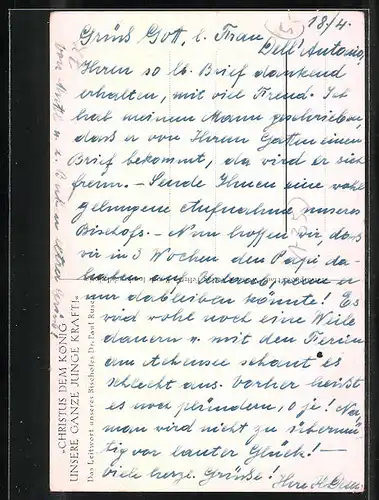 18/4.
Grüß Gott, l. Frau
Dell'Antonio,
Ihren so lb. Brief dankend
erhalten, mit viel Freud. Ich
hab meinem Mann geschrieben,
daß er von Ihrem Gatten einen
Brief bekommt, da wird er sich
freun. – Sende Ihnen eine wohl
gelungene Aufnahme unseres
Bischofs. – Nun hoffen wir, daß
wir in 3 Wochen den Papi da-
haben auf Urlaub, wenn er
nur dableiben könnte! Es
wird wohl noch eine Weile
dauern u. mit den Ferien
am Achensee schaut es
schlecht aus. Vorher heißt
es noch plündern, o je! Na,
man wird nicht zu übermü-
tig vor lauter Glück! –
Viele herzl. Grüße!
Ihre H.
»CHRISTUS DEM KÖNIG
UNSERE GANZE JUNGE KRAFT!«
Das Leitwort unseres Bischofes Dr. Paul Rusch